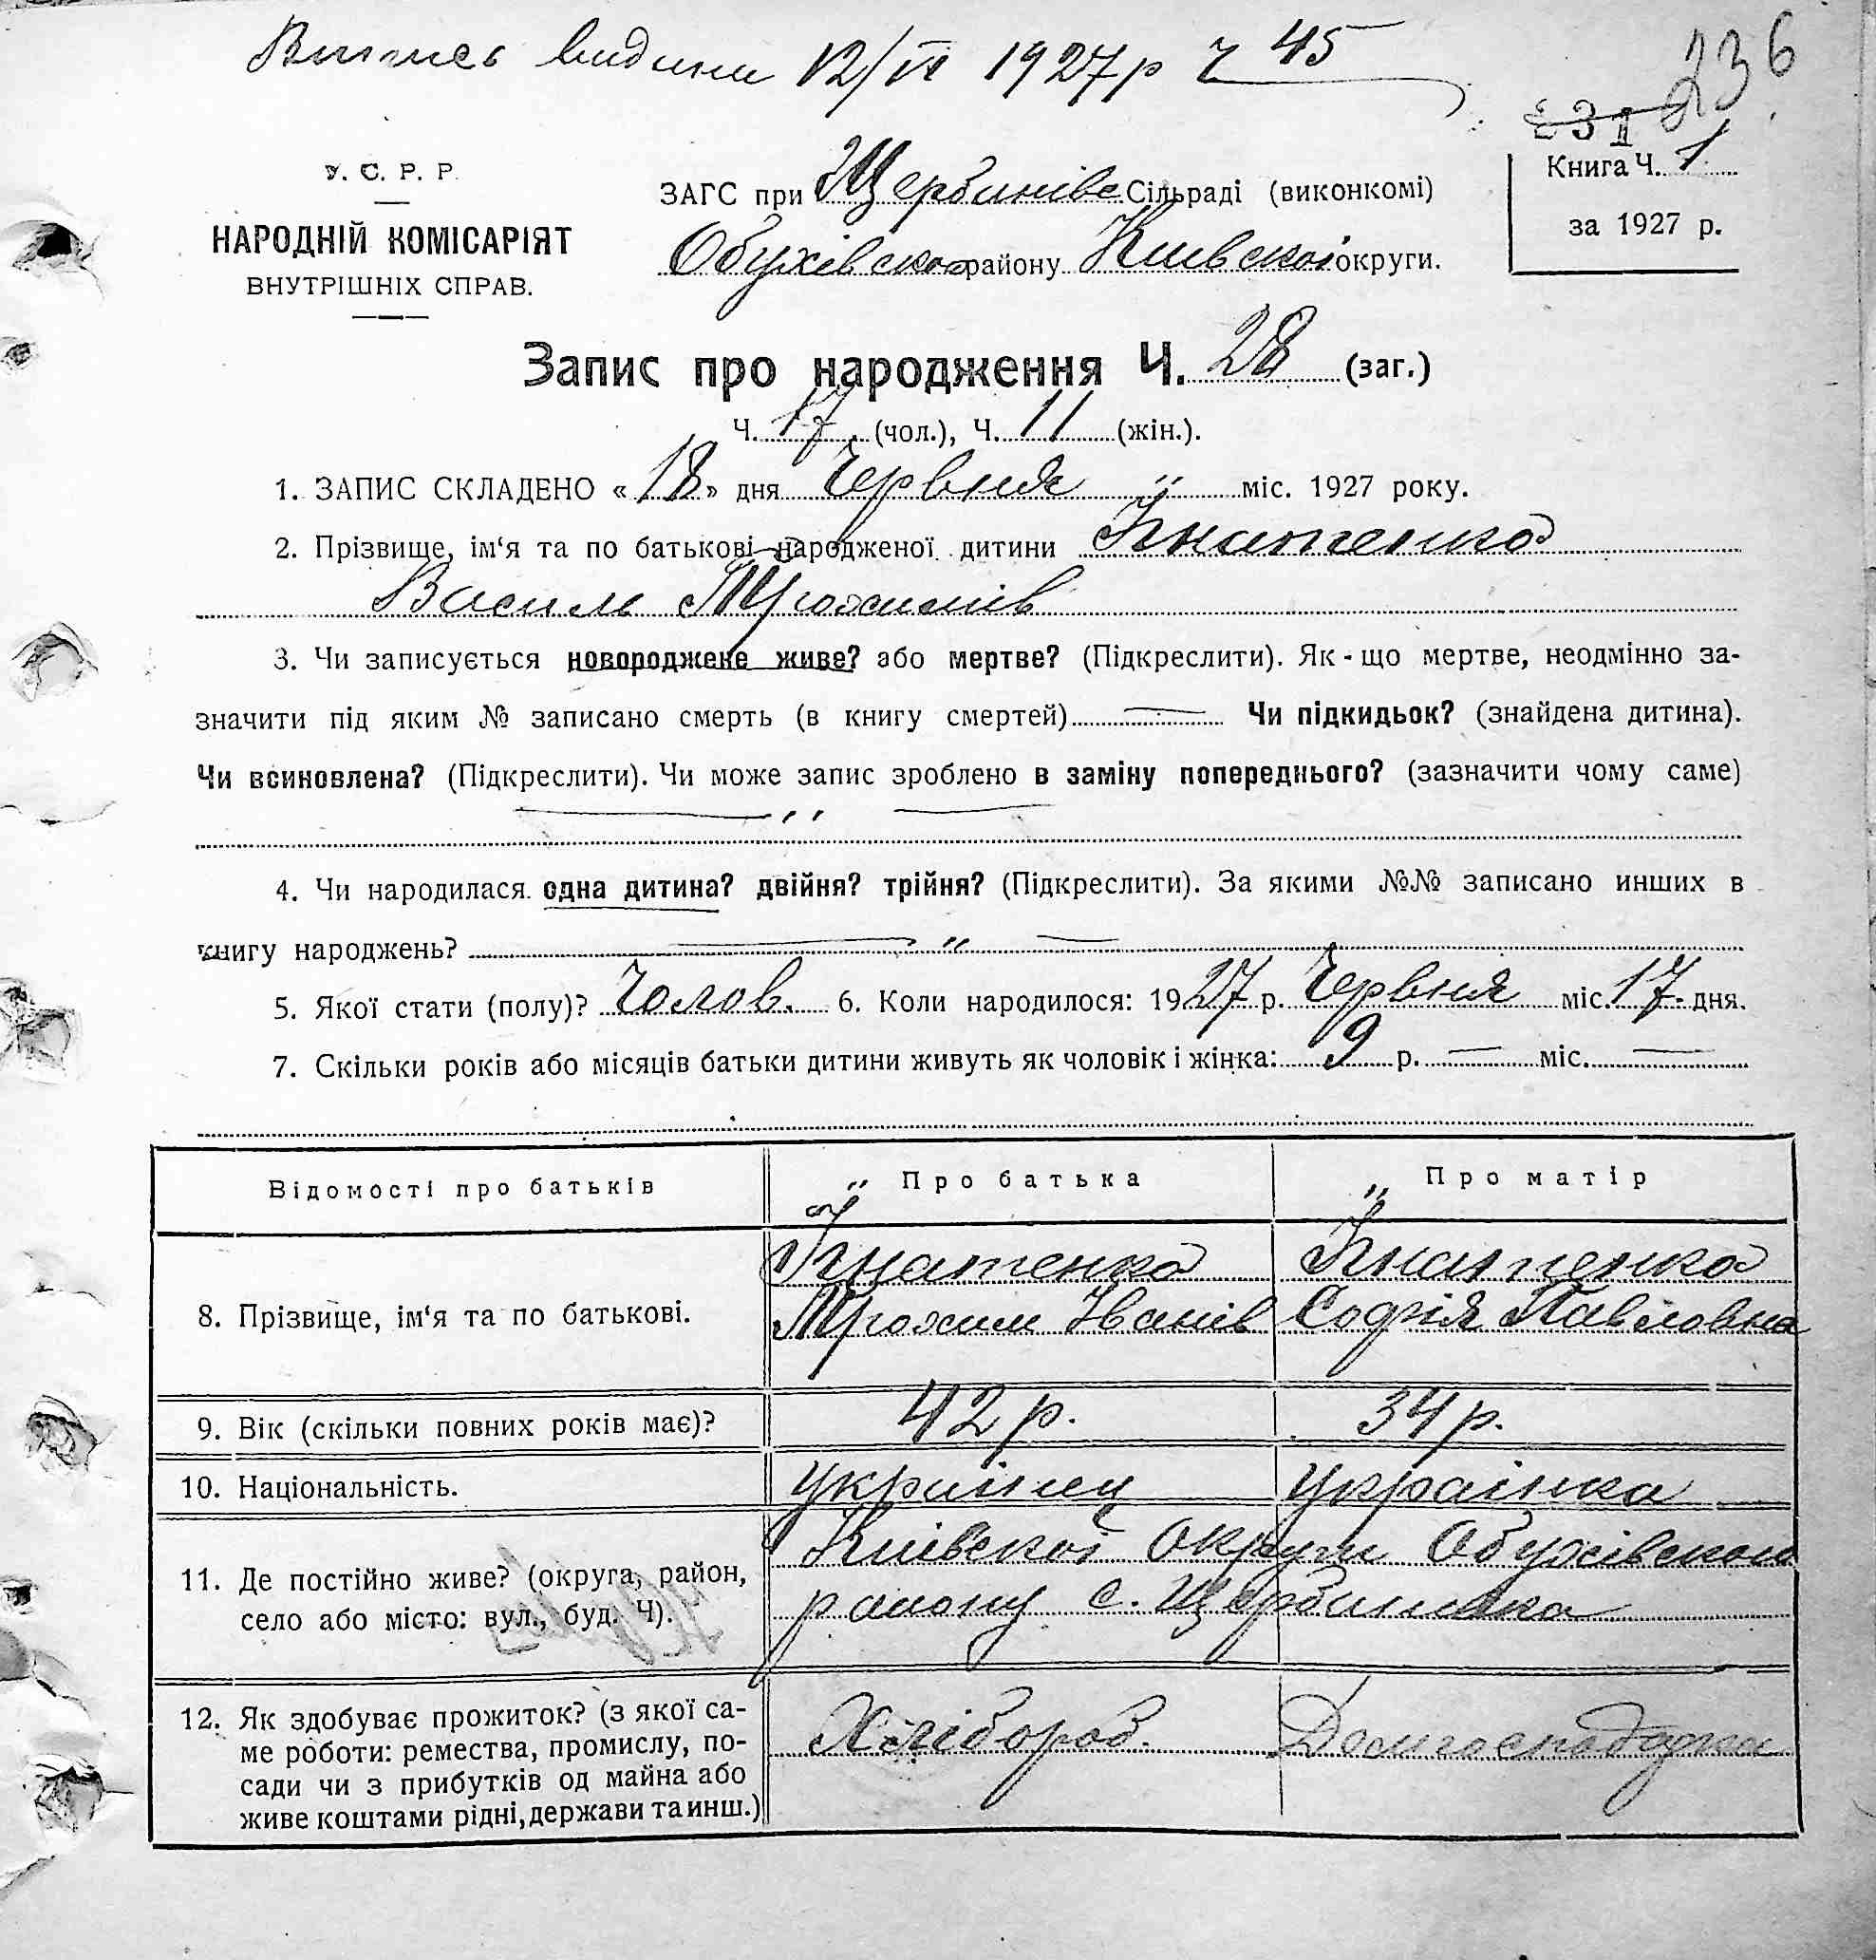 Випись видана 12/VI 1927 р Ч 45
236
231
У. С. Р. Р.
НАРОДНІЙ КОМІСАРІЯТ
ВНУТРІШНІХ СПРАВ.
ЗАГС при Щербанівс Сільраді (виконкомі)
Обухівского району Київскоі округи.
Книга Ч. 1
за 1927 р.
Запис про народження Ч. 28 (заг.)
Ч. 17 (чол.), Ч. 11 (жін.).
1. ЗАПИС СКЛАДЕНО «18» дня Червня " міс. 1927 року.
2. Прізвище, ім‘я та по батькові народженої дитини Ігнатенко
Василь Трохимів
3. Чи записується новороджене живе? або мертве? (Підкреслити). Як-що мертве, неодмінно за-
значити під яким № записано смерть (в книгу смертей) — Чи підкидьок? (знайдена дитина).
Чи всиновлена? (Підкреслити). Чи може запис зроблено в заміну попереднього? (зазначити чому саме)
— " —
4. Чи народилася одна дитина? двійня? трійня? (Підкреслити). За якими №№ записано инших в
книгу народжень? — " —
5. Якої стати (полу)? Чолов. 6. Коли народилося: 1927 р. Червня міс. 17 дня.
7. Скільки років або місяців батьки дитини живуть як чоловік і жінка: 9 р. — міс. —
Відомості про батьків Про батька Про матір
8. Прізвище, ім‘я та по батькові.
Ігнатенко Ігнатенко
Трохим Іванів Софія Павловна
9. Вік (скільки повних років має)? 42 р. 34 р.
10. Національність. українец українка
11. Де постійно живе? (округа, район,
село або місто: вул., буд. Ч).
Київскоі округи Обухівского
району с. Щербанівка
12. Як здобуває прожиток? (з якої са-
ме роботи: ремества, промислу, по-
сади чи з прибутків од майна або
живе коштами рідні, держави та инш.)
Хлібороб. Домгосподарка